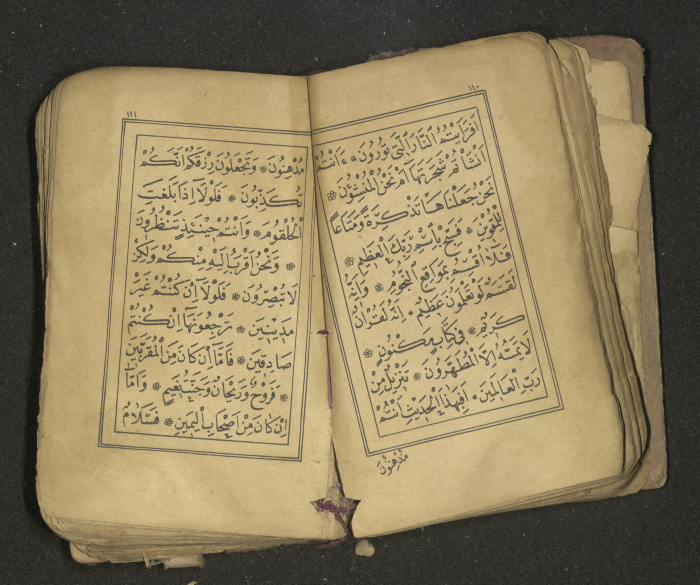 ١١٠
اَفَرَاَيْتُمُ النَّارَ الَّتى تُورُونَ ۞ ءَاَنْتُمْ
اَنْشَاْتُمْ شَجَرَتَهَا اَمْ نَحْنُ الْمُنْشِؤُنَ ۞
نَحْنُ جَعَلْنَاهَا تَذْكِرَةً وَمَتَاعًا
لِلْمُقْوِينَ ۞ فَسَبِّحْ بِاسْمِ رَبِّكَ الْعَظِيمِ ۞
فَلَا اُقْسِمُ بِمَوَاقِعِ النُّجُومِ ۞ وَاِنَّهُ
لَقَسَمٌ لَوْ تَعْلَمُونَ عَظِيمٌ ۞ اِنَّهُ لَقُرْاٰنٌ
كَرِيمٌ ۞ فِى كِتَابٍ مَكْنُونٍ ۞
لَا يَمَسُّهُ اِلَّا الْمُطَهَّرُونَ ۞ تَنْزِيلٌ مِنْ
رَبِّ الْعَالَمِينَ ۞ اَفَبِهٰذَا الْحَدِيثِ اَنْتُمْ
مُدْهِنُونَ
١١١
مُدْهِنُونَ ۞ وَتَجْعَلُونَ رِزْقَكُمْ اَنَّكُمْ
تُكَذِّبُونَ ۞ فَلَوْلَا اِذَا بَلَغَتِ
الْحُلْقُومَ ۞ وَاَنْتُمْ حِينَئِذٍ تَنْظُرُونَ
۞ وَنَحْنُ اَقْرَبُ اِلَيْهِ مِنْكُمْ وَلٰكِنْ
لَا تُبْصِرُونَ ۞ فَلَوْلَا اِنْ كُنْتُمْ غَيْرَ
مَدِينِينَ ۞ تَرْجِعُونَهَا اِنْ كُنْتُمْ
صَادِقِينَ ۞ فَاَمَّا اِنْ كَانَ مِنَ الْمُقَرَّبِينَ
۞ فَرَوْحٌ وَرَيْحَانٌ وَجَنَّتُ نَعِيمٍ ۞ وَاَمَّا
اِنْ كَانَ مِنْ اَصْحَابِ الْيَمِينِ ۞ فَسَلَامٌ